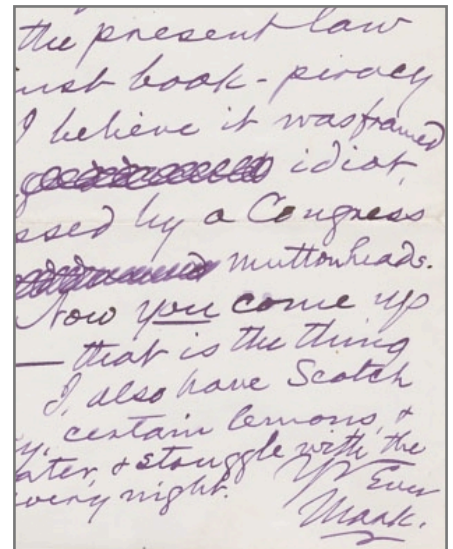 the present law
inst book-piracy
I believe it was framed
idiot,
ssed by a Congress
muttonheads.
Now you come up
— that is the thing
I, also have Scotch
y, certain lemons, &
ater, & struggle with the
very night.
Yr Ever
Mark.